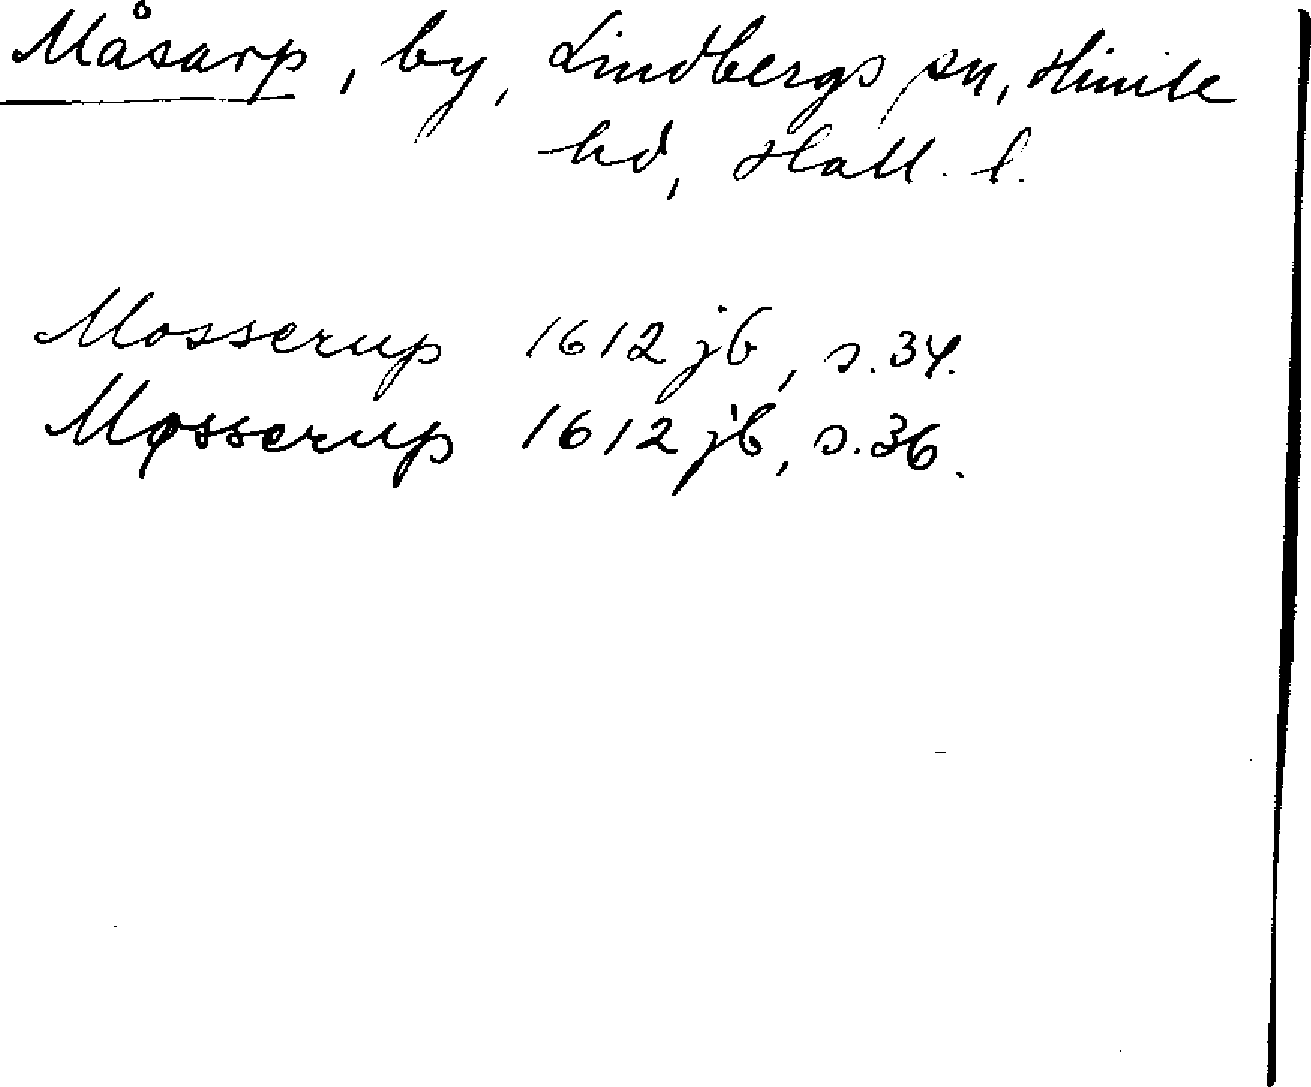 Måsarp, by, Lindbergs sn, Himle
hd, Hall. l.
Mosserup 1612 jb, s. 34.
Møsserup 1612 jb, s. 36.